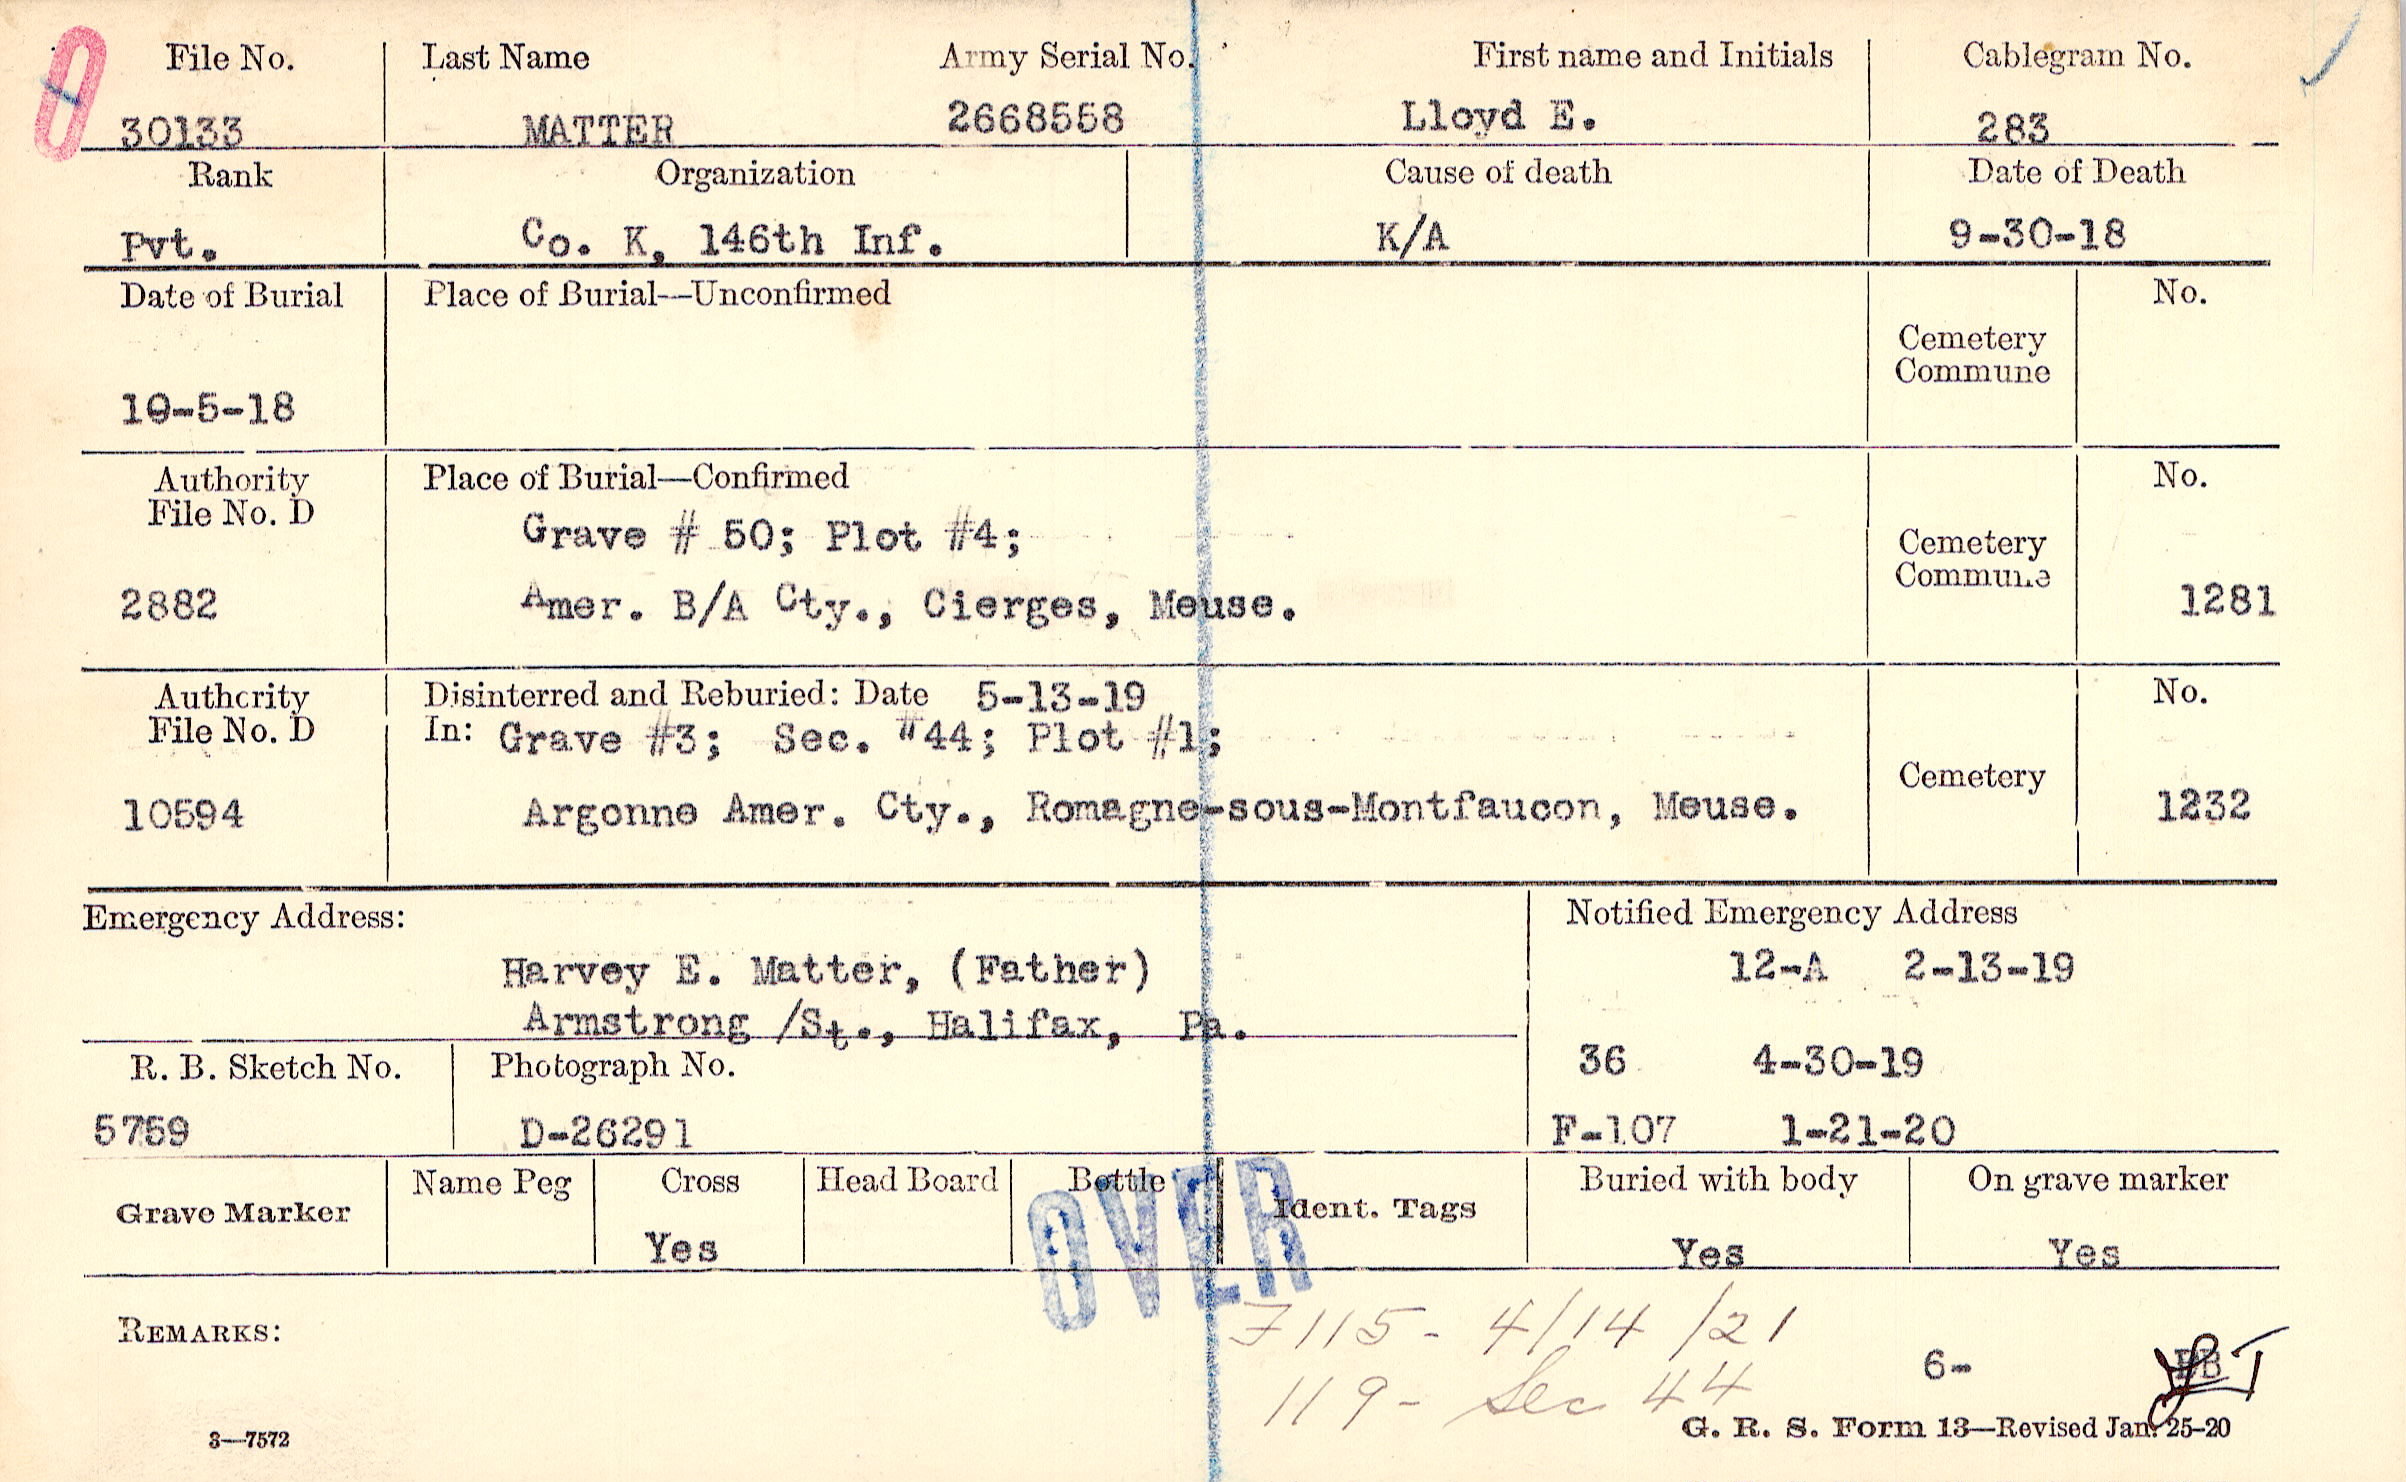 File No. Last Name Army Serial No. First name and Initials Cablegram No.
30133 MATTER 2668558 Lloyd E. 283
Rank Organization Cause of death Date of Death
Pvt. Co. K, 146th Inf. K/A 9-30-18
Date of Burial Place of Burial—Unconfirmed No.
Cemetery
Commune
10-5-18
Authority Place of Burial—Confirmed No.
File No. D
Grave # 50; Plot #4;
Cemetery
Commune
2882 Amer. B/A Cty., Cierges, Meuse. 1281
Authority Disinterred and Reburied: Date 5-13-19 No.
File No. D In: Grave #3; Sec. #44; Plot #1;
Cemetery
10594 Argonne Amer. Cty., Romagne-sous-Montfaucon, Meuse. 1232
Emergency Address: Notified Emergency Address
Harvey E. Matter, (Father) 12-A 2-13-19
Armstrong /St., Halifax, Pa.
R. B. Sketch No. Photograph No. 36 4-30-19
5759 D-26291 F-107 1-21-20
Grave Marker Name Peg Cross Head Board Bottle Ident. Tags Buried with body On grave marker
Yes Yes Yes
OVER
REMARKS: F115- 4/14/21
6-
119- Sec 44
3—7572 G. R. S. Form 13—Revised Jan. 25-20